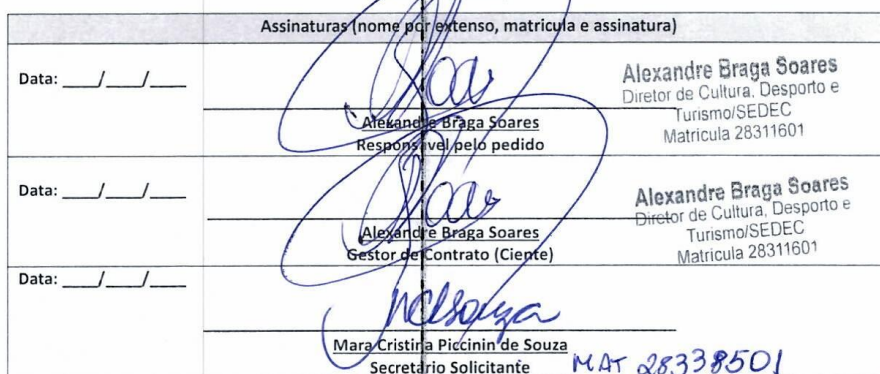 Assinaturas (nome por extenso, matricula e assinatura)
Data: ___/___/___
Alexandre Braga Soares
Responsável pelo pedido
Alexandre Braga Soares
Diretor de Cultura, Desporto e
Turismo/SEDEC
Matricula 28311601
Data: ___/___/___
Alexandre Braga Soares
Gestor de Contrato (Ciente)
Alexandre Braga Soares
Diretor de Cultura, Desporto e
Turismo/SEDEC
Matricula 28311601
Data: ___/___/___
Mara Cristina Piccinin de Souza
Secretário Solicitante
MAT 28338501